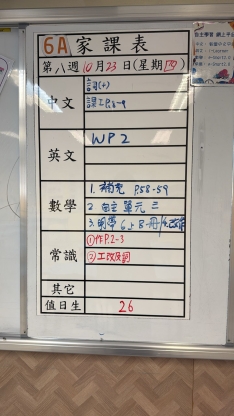 6A 家課表
第八週 10月23日(星期四)
中文
詞(六)
課工P.8-9
英文
WP2
數學
1. 補充 P.58-59
2. 自主 單元 三
3. 明帶 6上B冊
常識
①作P.2-3
②工改及詞
其它
值日生 26
自主學習 網上平台